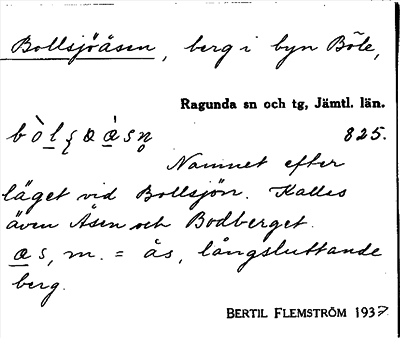 Bollsjöåsen, berg i byn Böle,
Ragunda sn och tg, Jämtl. län.
825.
Namnet efter
läget vid Bollsjön. Kallas
även Åsen och Bodberget.
æs, m. = ås, långsluttande
berg.
BERTIL FLEMSTRÖM 1937